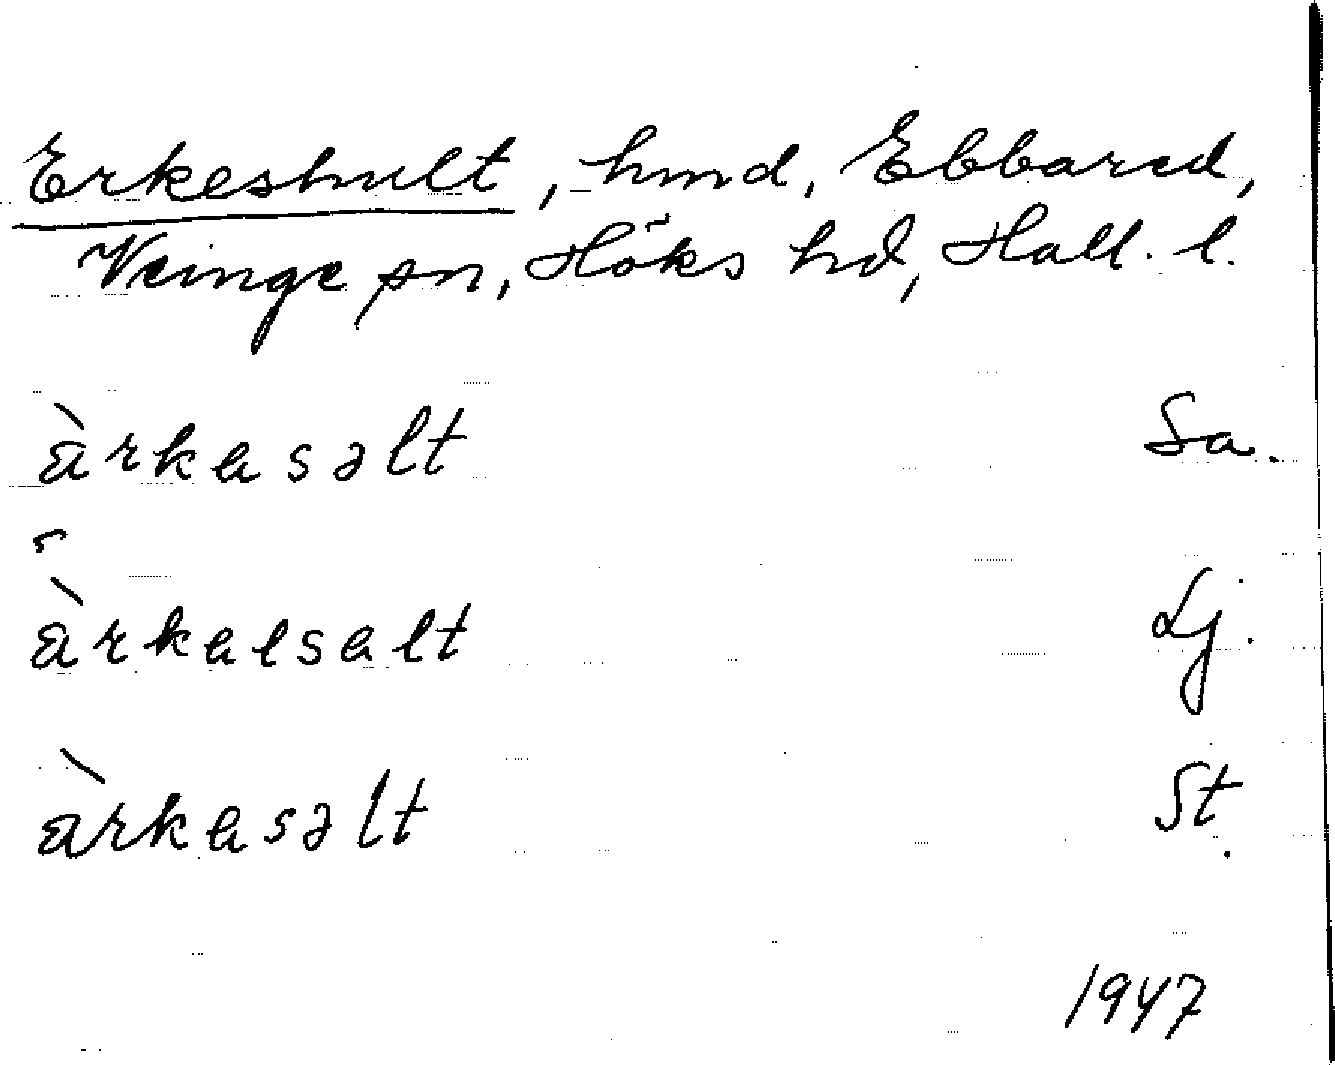 Erkeshult, hmd, Ebbared,
Veinge sn, Höks hd, Hall. l.
àrkasəlt Sa.
àrkalsalt Lj.
àrkasəlt St.
1947